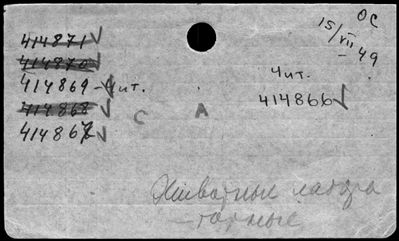 ОС
15/VII – 49
414871 ✓
414870 ✓
414869 – Чит.
414868 ✓
414867 ✓
Чит.
414866 ✓
С А